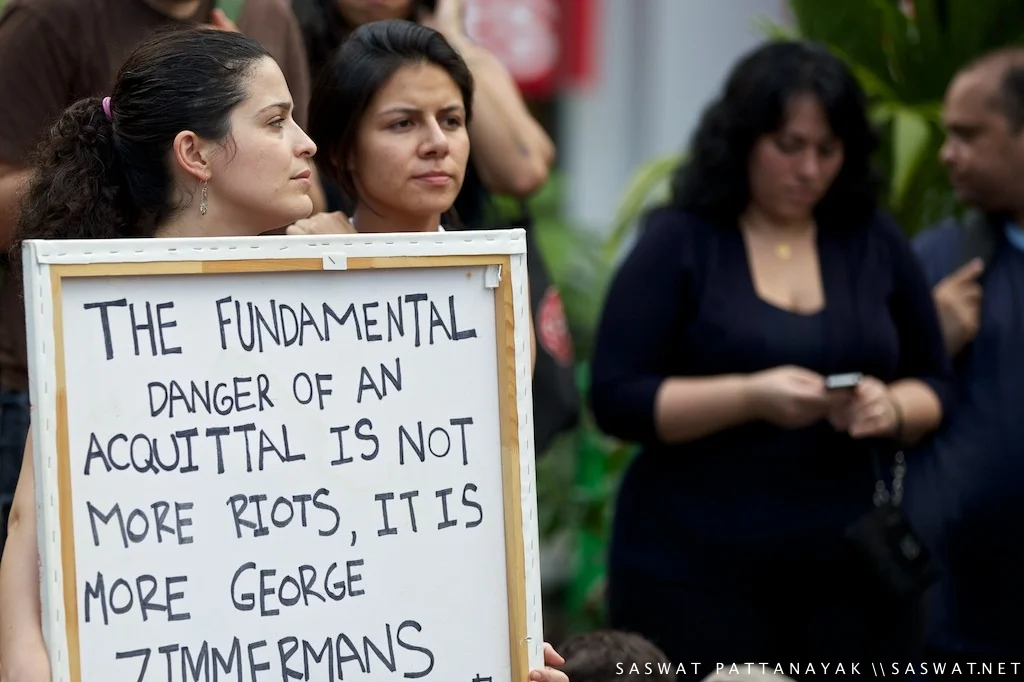 THE FUNDAMENTAL
DANGER OF AN
ACQUITTAL IS NOT
MORE RIOTS, IT IS
MORE GEORGE
ZIMMERMANS
SASWAT PATTANAYAK \\ SASWAT.NET